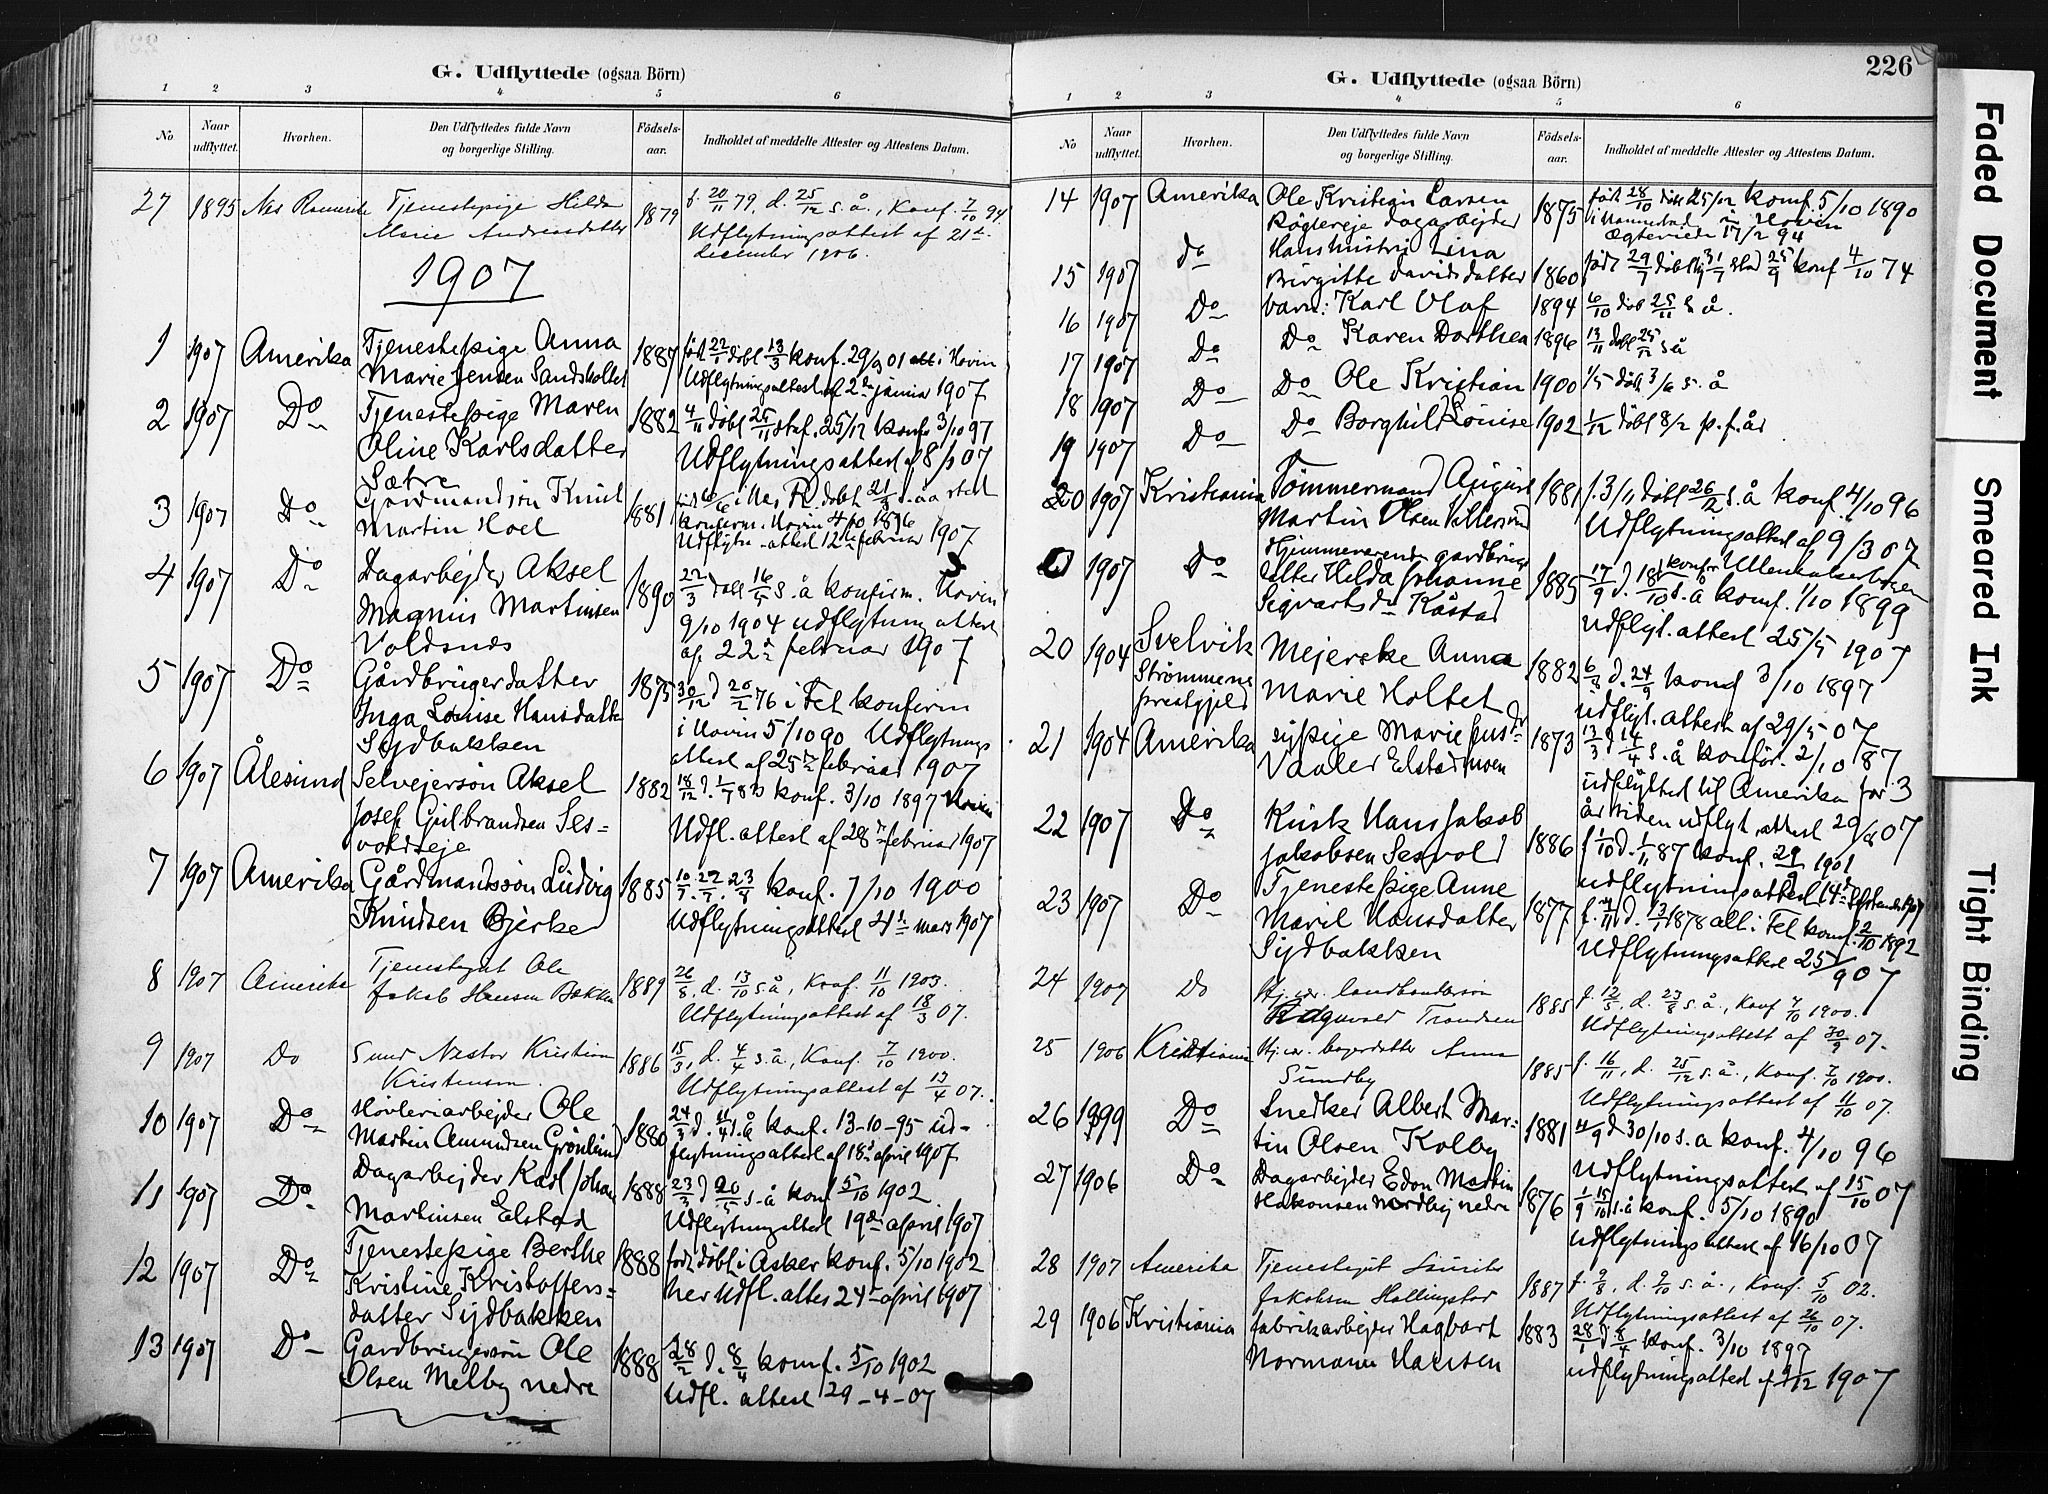 G. Udflyttede (ogsaa Börn)
1 2 3 4 5 6
No Naar udflyttet. Hvorhen. Den Udflyttedes fulde Navn og borgerlige Stilling. Födsels-aar. Indholdet af meddelte Attester og Attestens Datum.
27 1895 Nes Romerike Tjenestepige Hilda 1879 f. 20/11 79, d. 25/12 s. å., Konf. 7/10 94
Marie Andreasdatter Udflytningsattest af 21de
december 1906.
1907
1 1907 Amerika Tjenestepige Anna 1887 født 22/1 døbt 13/3 konf. 29/9 01 i Hovin
Marie Jensen Sandsholtet Udflytningsattest af 2den januar 1907
2 1907 Do Tjenestepige Maren 1882 4/11 døbt 25/11 staf. 25/12 konf 3/10 97
Oline Karlsdatter Udflytningsattest af 8/1 07
Sætre
3 1907 Do Gårdmandssøn Knut 1881 i Nes R. døbt 21/8 s. åa sted
Martin Hoel Konfirm. Hovin 4/10 1896
Udflytn-attest 12te februar 1907
4 1907 Do Dagarbejder Aksel 1890 22/3 døbt 16/5 s. å konfirm. Hovin
Magnus Martinsen 9/10 1904 udflytning attest
Voldsnes af 22de februar 1907
5 1907 Do Gårdbrugerdatter 1875 30/12 d 20/2 76 i Fet konfirm
Inga Louise Hansdatter i Hovin 5/10 90 Udflytnings
Sydbakken attest af 25de februar 1907
6 1907 Ålesund Selvejersøn Aksel 1882 18/12 d. 1/7 83 konf. 3/10 1897 Hovin
Josef Gulbrandsen Ses- Udfl. attest af 28de februar 1907
voldseje
7 1907 Amerika Gårdmandssøn Ludvig 1885 10/7 23/8 konf. 7/10 1900
Knudsen Bjerke Udflytningsattest 21de mars 1907
8 1907 Amerika Tjenestegut Ole 1889 26/8, d. 13/10 s. å, Konf. 11/10 1903.
Jakob Hansen Bakken Udflytningsattest af 18/3 07.
9 1907 Do Smed Nestor Kristian 1886 15/3, d. 4/4 s. å, Konf. 7/10 1900.
Kristensen. Udflytningsattest af 13/4 07.
10 1907 Do Høvleriarbejder Ole 1880 24/3 d. 11/4 s. å konf. 13-10-95 ud-
Martin Amundsen Grönlund flytningsattest af 18de april 1907
11 1907 Do Dagarbejder Karl Johan 1888 23/3 d 20/5 s. å konf 5/10 1902
Martinsen Elstad Udflytningattest 19de april 1907
12 1907 Do Tjenestepige Berthe 1888 født døbt i Asker konf. 5/10 1902
Kristine Kristoffers- her Udfl. attes 24de april 1907
datter Sydbakken
13 1907 Do Gardbrugersøn Ole 1888 28/2 d. 8/4 konf. 5/10 1902
Olsen Melby nedre Udfl. attest 29-4-07
226
G. Udflyttede (ogsaa Börn)
1 2 3 4 5 6
No Naar udflyttet. Hvorhen. Den Udflyttedes fulde Navn og borgerlige Stilling. Födsels-aar. Indholdet af meddelte Attester og Attestens Datum.
14 1907 Amerika Ole Kristian Larsen 1875 født 28/10 døbt 25/12 konf. 5/10 1890
dagarbejder i Hovin
Ægteviede 17/2 94
15 1907 do Hans hustru Lina
Birgitte Davidsdatter 1860 født 29/7 døbt 31/7 stad 25/9 konf 4/10 74
16 1907 Do barn: Karl Olaf 1894 6/10 døb 25/11 s å.
17 1907 Do Do Karen Dorthea 1896 13/11 døbt 25/12 s å
18 1907 Do Do Ole Kristian 1900 1/5 døbt 3/6 s. å
19 1907 Do Do Borghild Louise 1902 1/12 døbt 8/2 p. f. år
20 1907 Kristiania Tömmermand August 1881 f. 3/11 døbt 26/12 s. å konf. 4/10 96
Martin Olsen Udflytningsattest af 9/3 07
1907 Do Hjemmeværende gardbrugs konfr Ullensakerbogen
datter Hilda Johanne 1885 17/9 d. 18/10 s. å konf. 1/10 1899
Sigvartsda Kåstad udflyt. attest 25/5 1907
20 1904 Svelvik Mejerske Anna 1882 6/8 d. 24/9 konf 3/10 1897
Strømmens Marie Holtet udflyt. attest af 29/5 07
prestgjeld
21 1904 Amerika sypige Marie Jusda 1873 13/3 d 14/4 s. å konför. 2/10 87
Vaaler Elstad udflyttet til Amerika for 3
år siden udflyt attest 20/8 07
22 1907 Do Kusk Hans Jakob 1886 f 1/10 d. 1/11 87 konf. 29/9 1901
Jakobsen Sesvold udflytningsattest 14de September 1907
23 1907 Do Tjenestepige Anne 1877 f. d. 13/1 1878 alt i Fet konf. 2/10 1892
Maril Hansdatter Udflytningsattest 25/9 07
Sydbakken
24 1907 Do Hj. vr. landhandlersøn 1885 f. 12/5, d. 23/8 s. å., Konf 7/10 1900.
Trondsen Udflytningsattest af 30/9 07.
25 1906 Kristiania Hj. vr. bagerdatter Anna 1885 f. 16/11, d. 25/12 s. å., Konf. 7/10 1900.
Sundby Udflytningsattest af 11/10 07.
26 1899 Do Snedker Albert Mar- 1881 4/9 d 30/10 s. a konf. 4/10 96
tin Olsen Kolby Udflytningsattest af 15/10 07
27 1906 Do Dagarbejder Edon Martin 1876 1/9 15/10 s. å konf. 5/10 1890
Hakonsen Nordby nedre udflytnings attest af 16/10 07
28 1907 Amerika Tjenestegut Lauritz 1887 f. 9/8, d. 9/10 s. å., Konf. 5/10 02.
Jakobsen Hallingstad Udflytningsattest af 26/10 07.
29 1906 Kristiania fabrikarbejder Hagbart 1883 28/1 d 8/4 konf. 3/10 1897
Normann Hansen udflytningsattest af 2/12 1907
Faded Document
Smeared Ink
Tight Binding